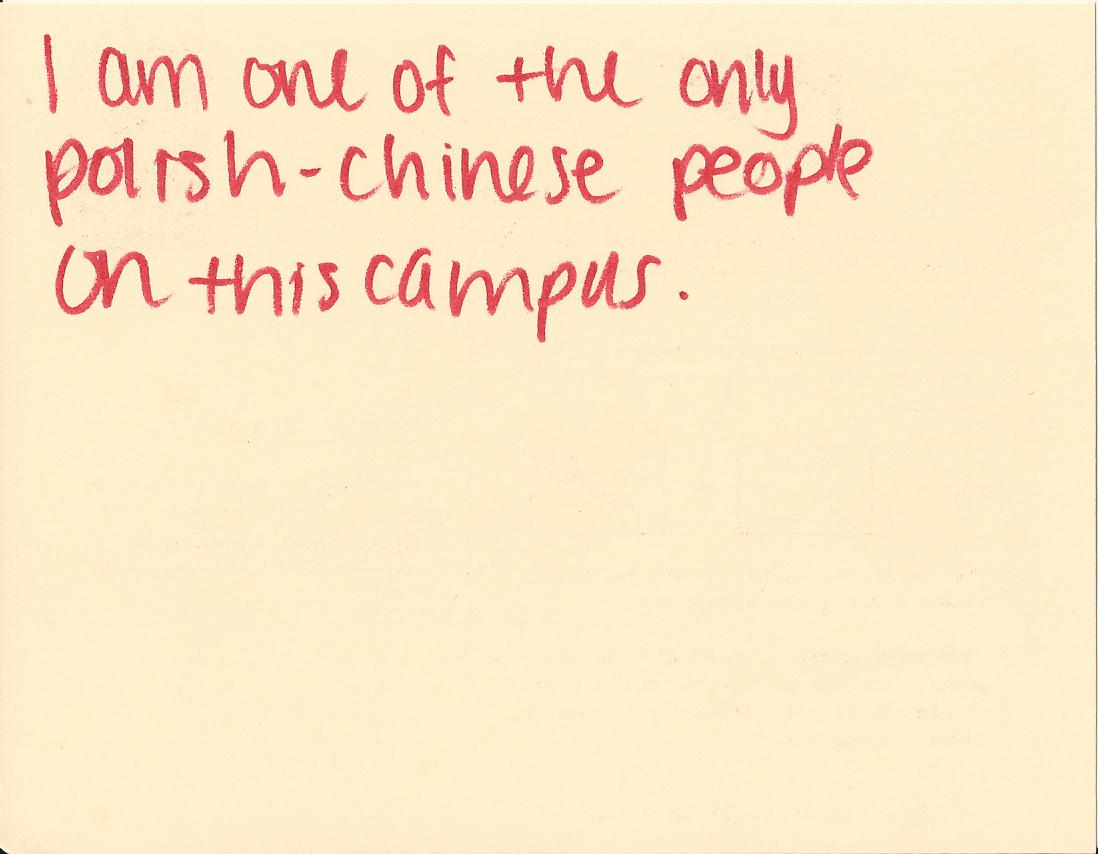 I am one of the only
polish-chinese people
on this campus.